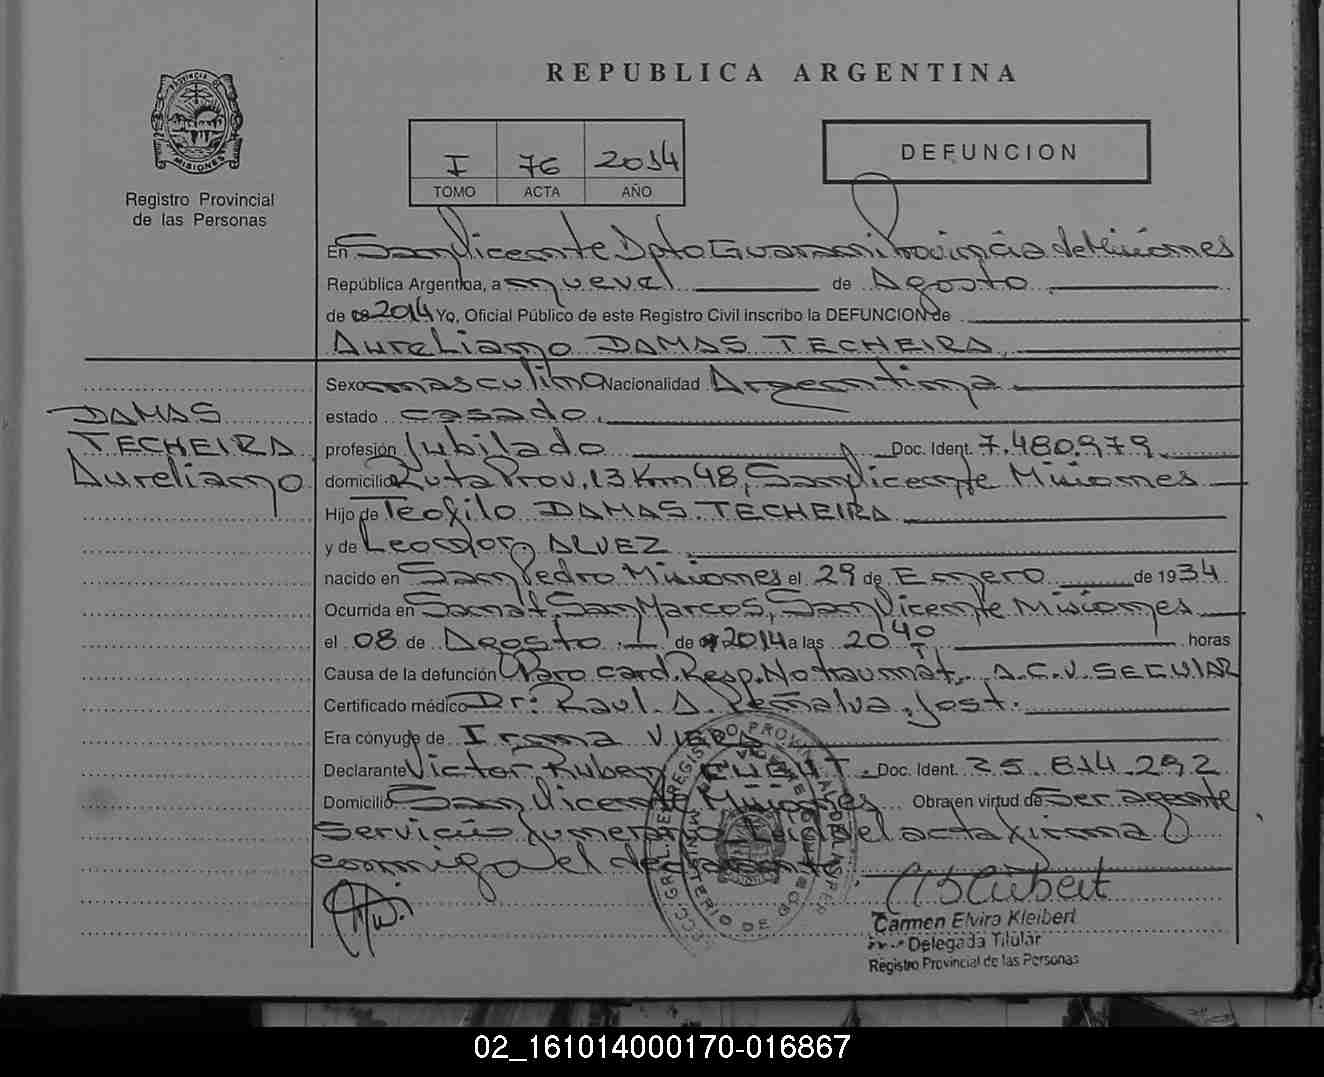 REPUBLICA ARGENTINA
PROVINCIA DE MISIONES
Registro Provincial
de las Personas
I 76 2014
TOMO ACTA AÑO
DEFUNCION
En San Vicente Dpto Guarani Provincia de Misiones
República Argentina, a nueve de Agosto
de 2014 Yo, Oficial Público de este Registro Civil inscribo la DEFUNCION de
Aureliano DAMAS TECHEIRA
DAMAS
TECHEIRA
Aureliano
Sexo masculino Nacionalidad Argentina
estado casado
profesión Jubilado Doc. Ident. 7.480.979
domicilio Ruta Prov. 13 Km 48, San Vicente Misiones
Hijo de Teofilo DAMAS TECHEIRA
y de Leodor ALVEZ
nacido en San Pedro Misiones el 29 de Enero de 1934
Ocurrida en Sanat. San Marcos, San Vicente Misiones
el 08 de Agosto de 2014 a las 20 40 horas
Causa de la defunción Paro card. Resp. No traumat. A.C.V. SECULAR
Certificado médico Dr: Raul A. Peñalva Jost.
Era cónyuge de Irma VIERA
Declarante Victor Ruben Doc. Ident. 25.614.292
Domicilio San Vicente Misiones Obra en virtud de Ser agente
Servicio funerario Leida el acta firma
conmigo el declarante
Carmen Elvira Kleibert
Delegada Titular
Registro Provincial de las Personas
02_161014000170-016867